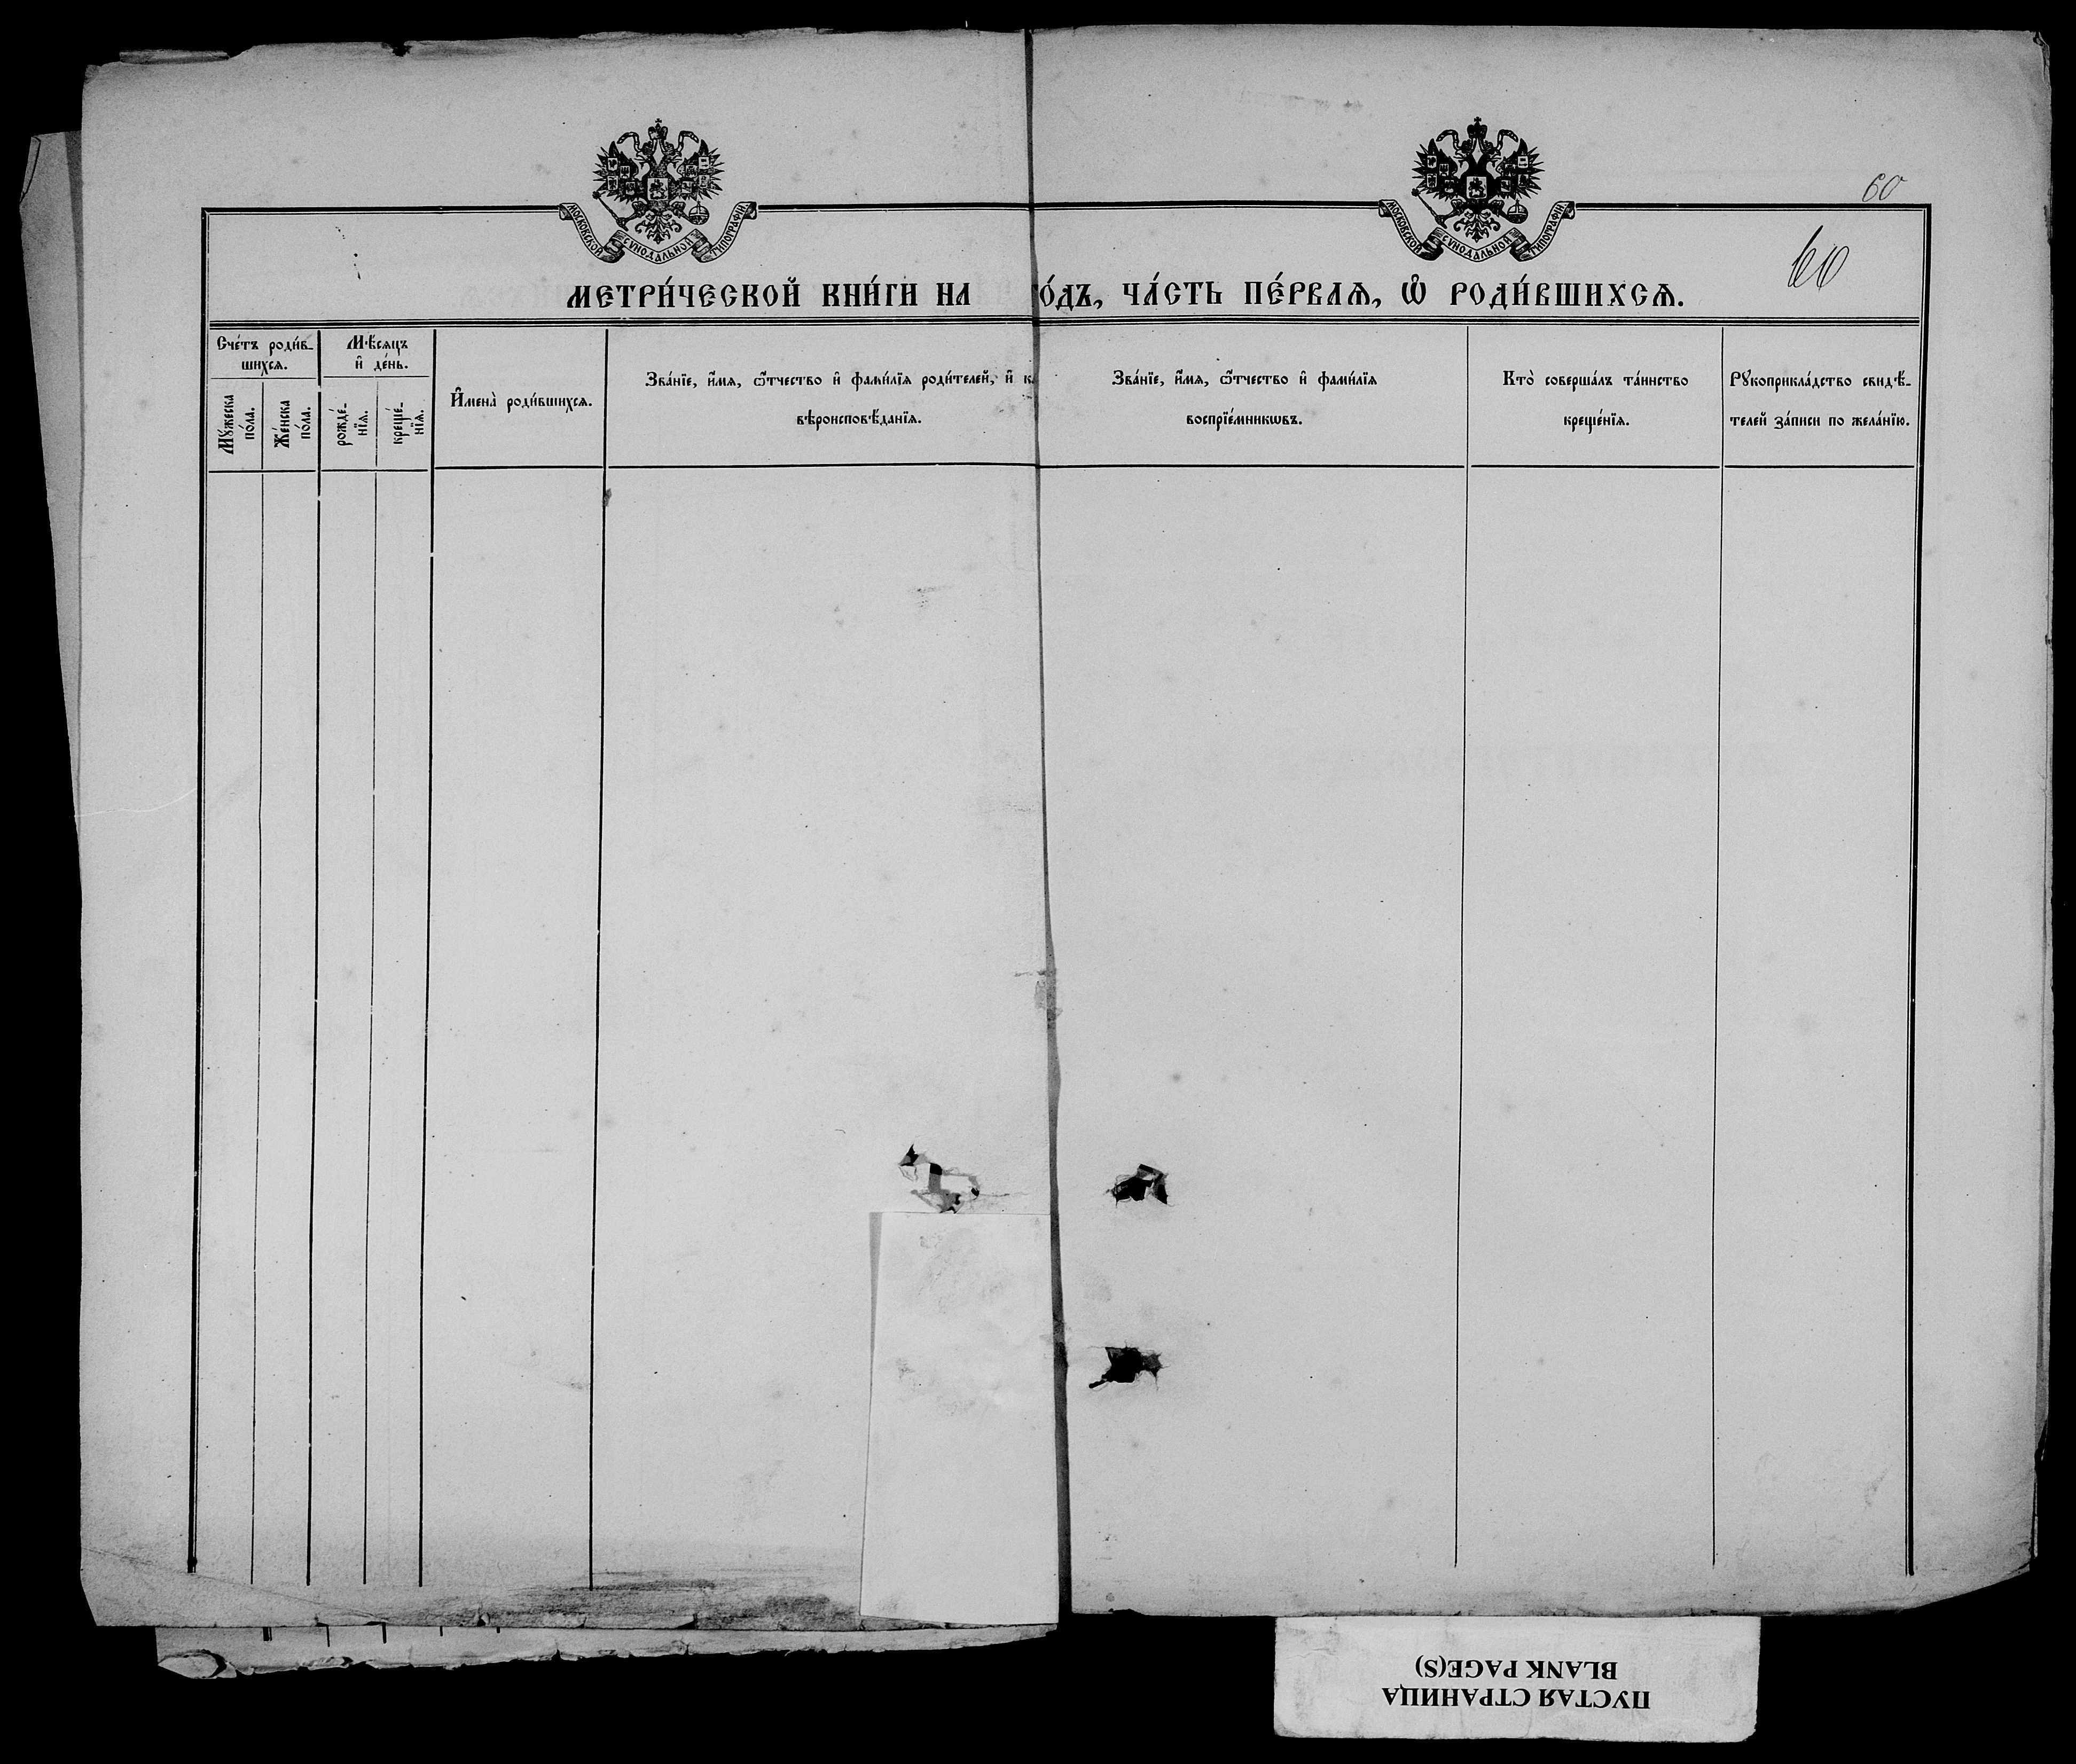 60
МОСКОВСКОЙ СѴНОДАЛЬНОЙ ТИПОГРАФІИ
МОСКОВСКОЙ СѴНОДАЛЬНОЙ ТИПОГРАФІИ
60
МЕТРИ́ЧЕСКОЙ КНИ́ГИ НА О́ДЪ, ЧА́СТЬ ПЕ́РВАѦ, Ѽ РОДИ́ВШИХСѦ.
Сче́тъ роди́в-
шихсѧ.
Мꙋ́жеска
по́ла.
Же́нска
по́ла.
Мѣ́сѧцъ
и҆ де́нь.
рожде́-
нїѧ.
креще́-
нїѧ.
И҆мена̀ роди́вшихсѧ.
Зва́нїе, и҆́мѧ, ѻ҆́тчество и҆ фами́лїѧ роди́телей, и҆ к
вѣроисповѣ́данїѧ.
Зва́нїе, и҆́мѧ, ѻ҆́тчество и҆ фами́лїѧ
воспрїе́мникѡвъ.
Кто̀ соверша́лъ та́инство
креще́нїѧ.
Рꙋкоприкла́дство свидѣ́-
телей за́писи по жела́нїю.
ПУСТАЯ СТРАНИЦА
BLANK PAGE(S)